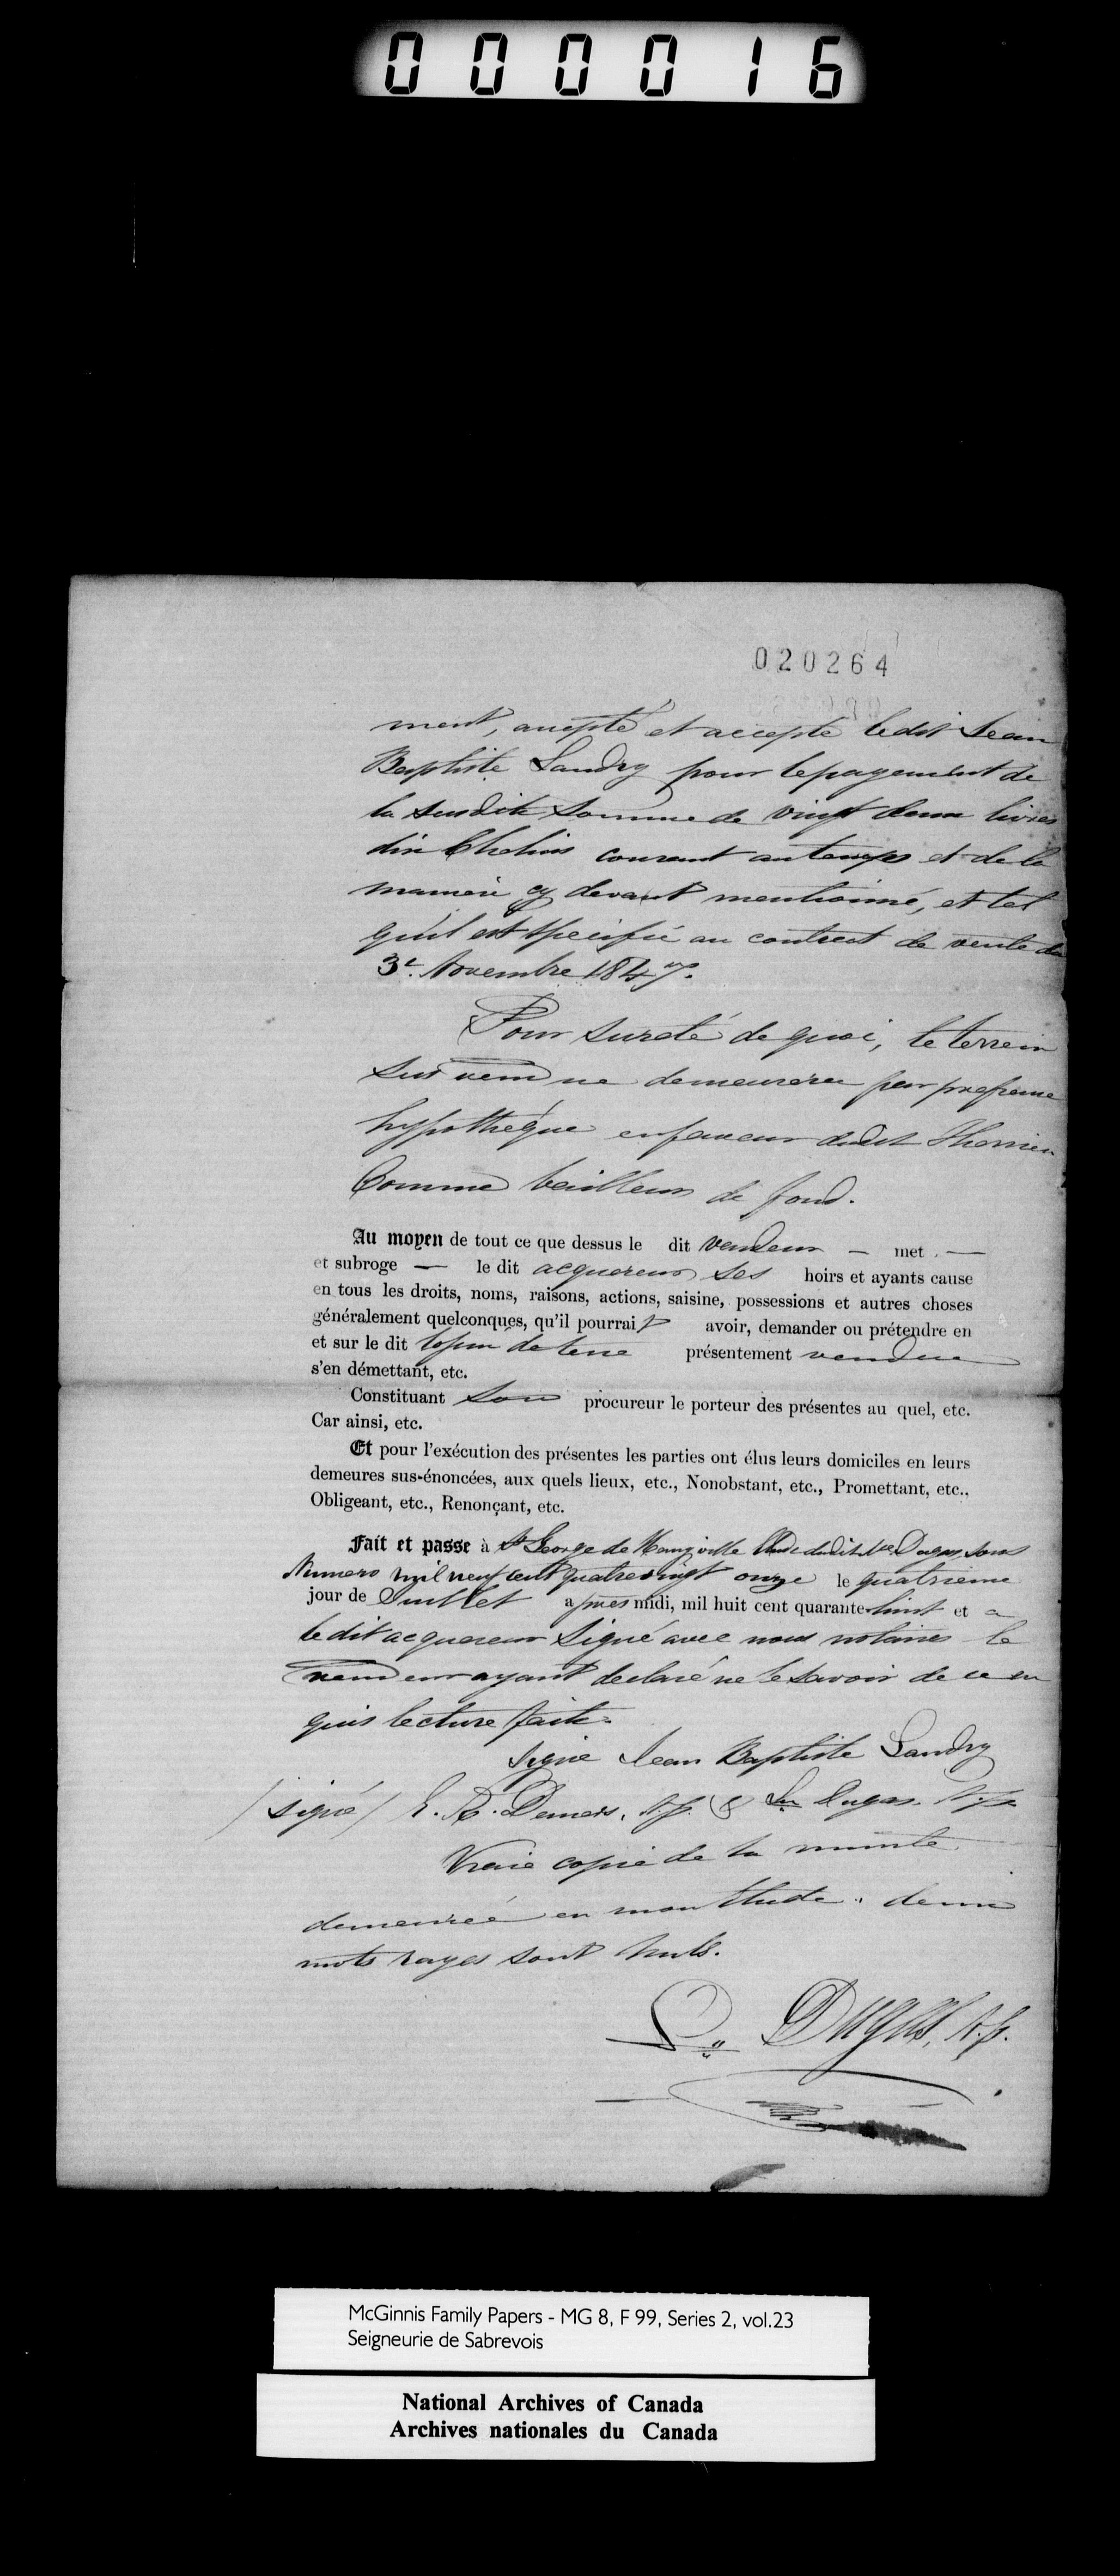 000016
020264
ment, accepté et accepte le dit Jean
Baptiste Landry pour le payement de
la susdite somme de vingt deux livres
dix Chelins courant au temps et de la
maniere cy devant mentionné, et tel
qu'il est specifié au contract de vente du
3e. Novembre 1847.
Pour sureté de quoi, le terrein
sus vendu demeurera par
hypothéque en faveur dudit Therrien
Comme bailleur de fond.
Au moyen de tout ce que dessus le dit vendeur — met —
et subroge — le dit acquereur ses hoirs et ayants cause
en tous les droits, noms, raisons, actions, saisine, possessions et autres choses
généralement quelconques, qu'il pourrait avoir, demander ou prétendre en
et sur le dit lopin de terre présentement vendu
s'en démettant, etc.
Constituant son procureur le porteur des présentes au quel, etc.
Car ainsi, etc.
Et pour l'exécution des présentes les parties ont élus leurs domiciles en leurs
demeures sus-énoncées, aux quels lieux, etc., Nonobstant, etc., Promettant, etc.,
Obligeant, etc., Renonçant, etc.
Fait et passe à St George de Etude dudit Dugas, sous
Numero mil neuf cent quatrevingt onze le quatrieme
jour de Juillet apres midi, mil huit cent quarante-huit et a
le dit acquereur Signé avec nous notaires le
vendeur ayant declaré ne le savoir de ce en
quis lecture faite.
signé Jean Baptiste Landry
/signé/ E. R. Demers, N.P. & Dugas N.P.
Vraie copie de la minute
demeurée en mon Etude. deux
mots rayes sont nuls.
Dugas, N.P.
McGinnis Family Papers - MG 8, F 99, Series 2, vol.23
Seigneurie de Sabrevois
National Archives of Canada
Archives nationales du Canada